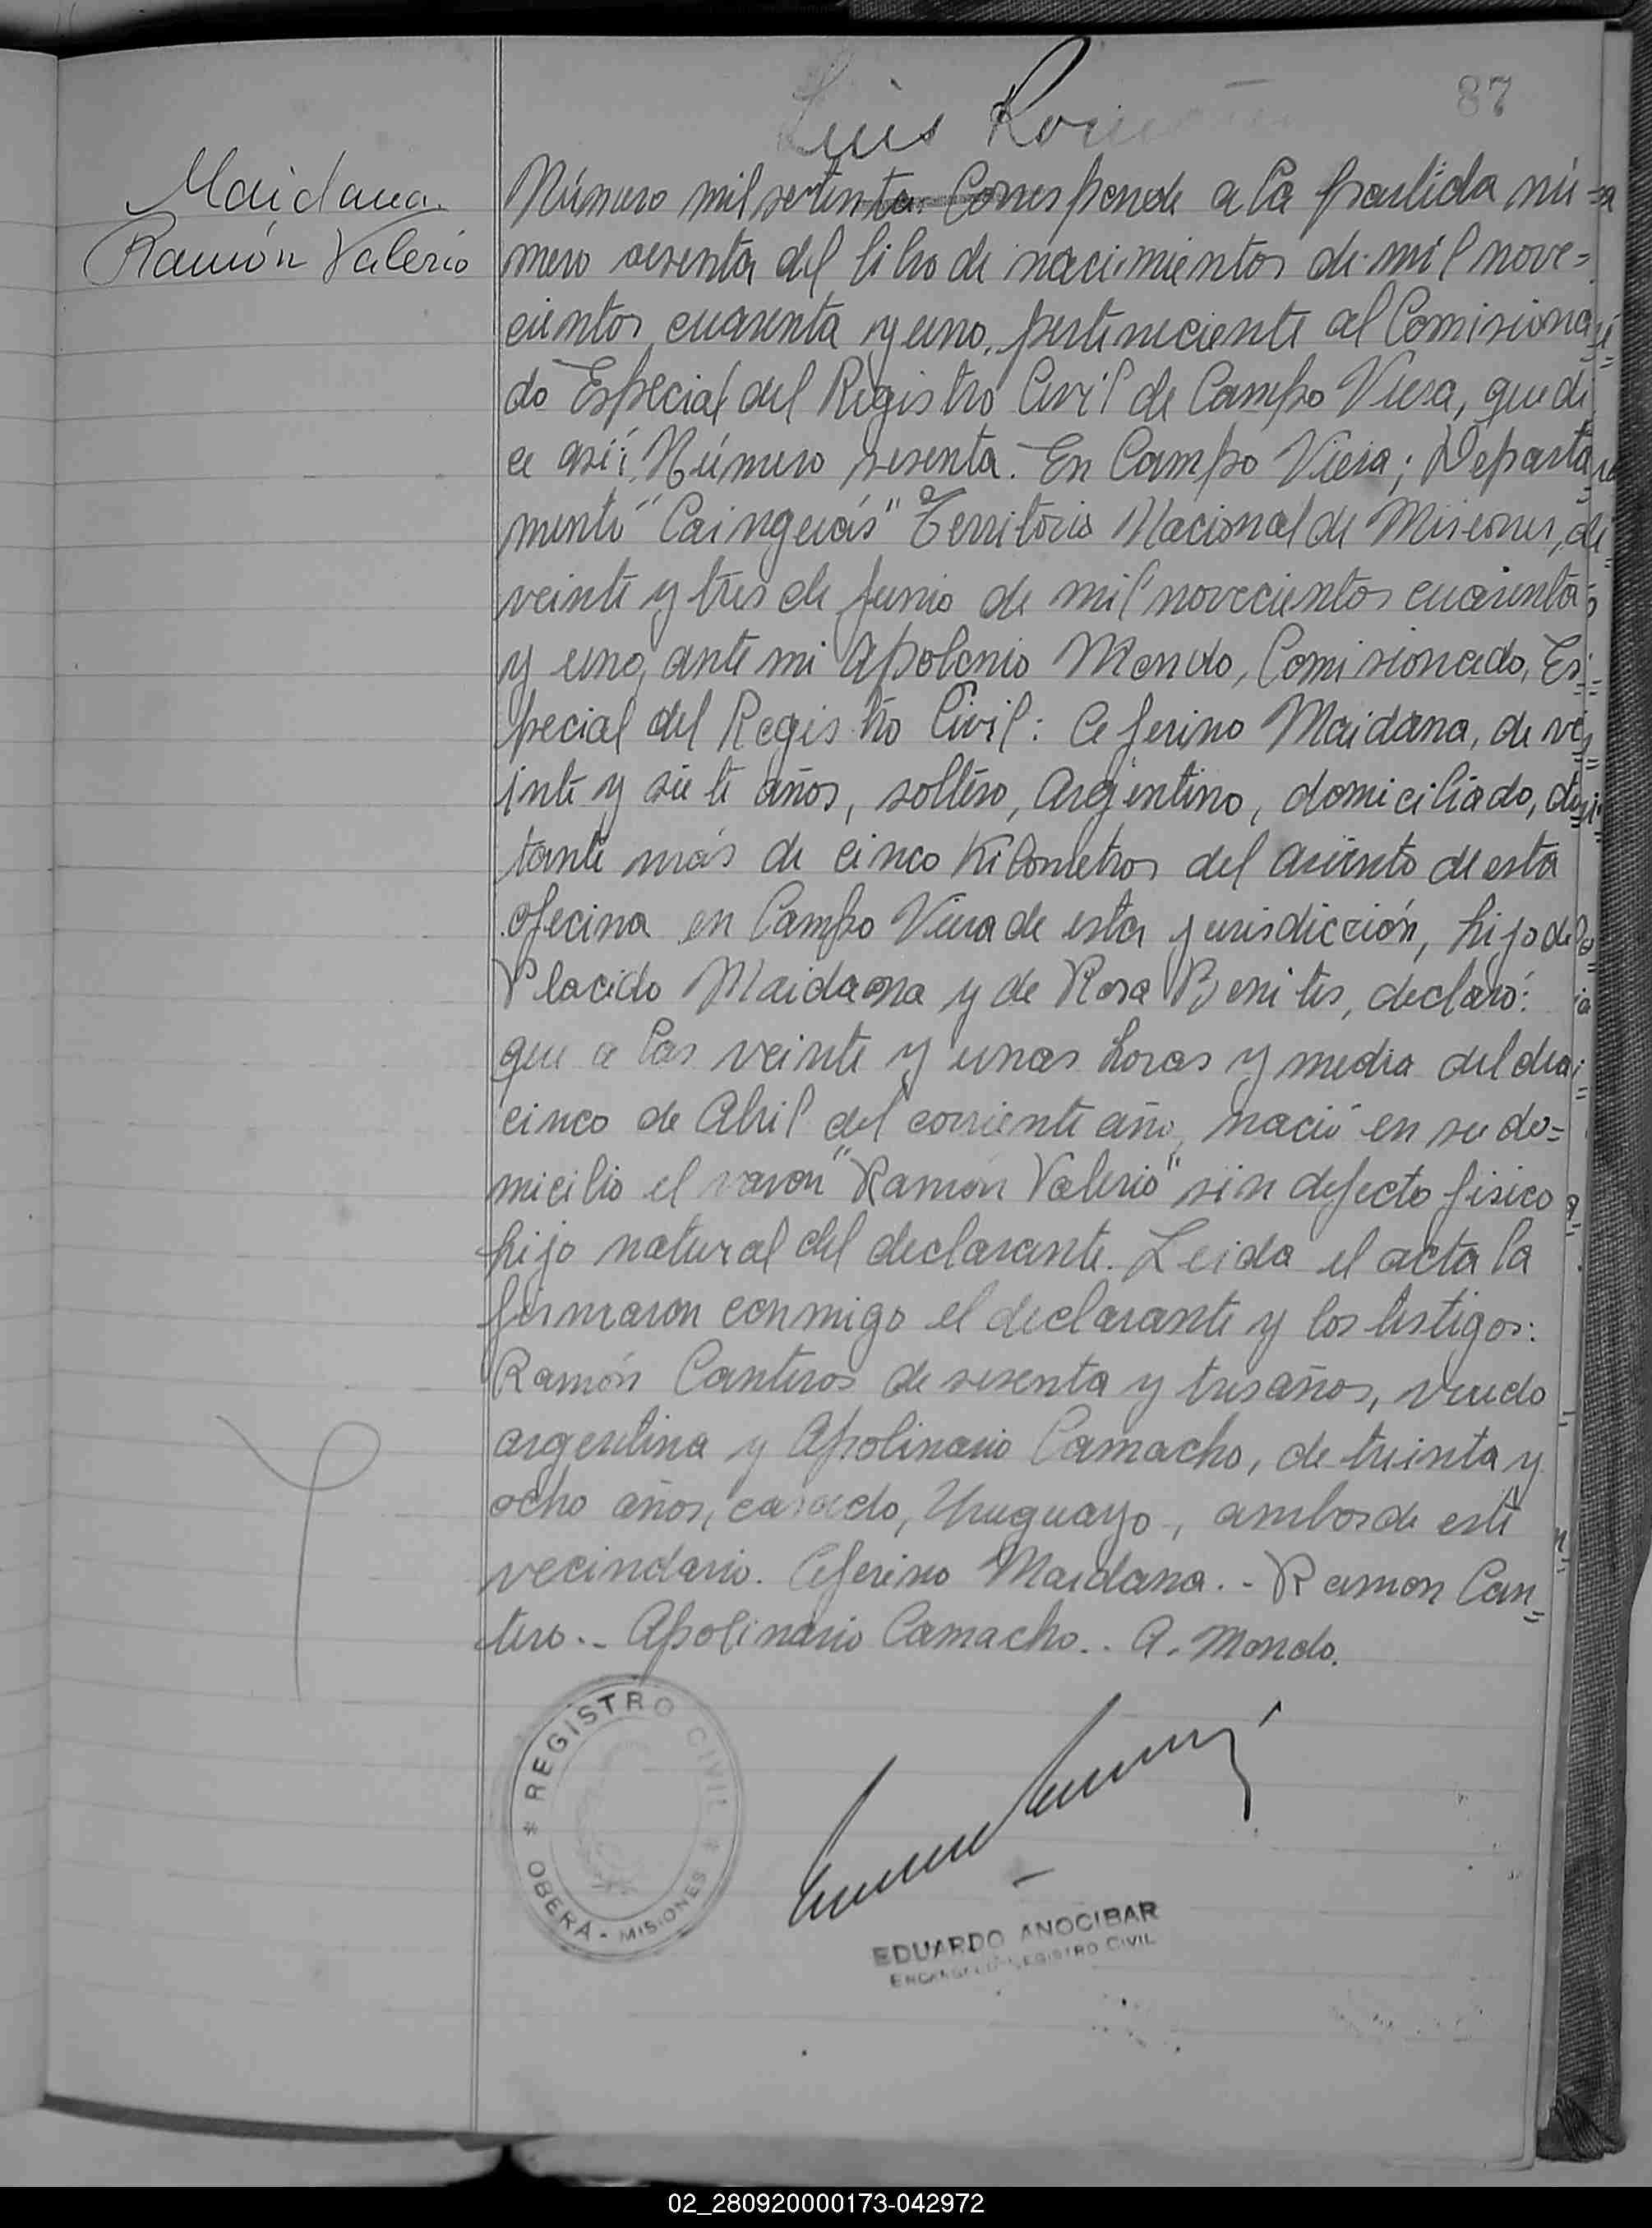 87
Luis
Maidana
Ramón Valerio
Número mil setenta. Corresponde a la partida nú-
mero sesenta del libro de nacimientos de mil nove=
cientos cuarenta y uno, perteneciente al Comisiona
do Especial del Registro Civil de Campo Viera, que di
ce así: Número sesenta. En Campo Viera; Departa
mento "Cainguás" Territorio Nacional de Misiones, a
veinte y tres de Junio de mil novecientos cuarenta
y uno, ante mi Apolonio Mondo, Comisionado, Es=
pecial del Registro Civil: Ceferino Maidana, de ve
inte y siete años, soltero, Argentino, domiciliado, dis
tante más de cinco Kilometros del asiento de esta
oficina en Campo Viera de esta jurisdicción, hijo de
Placido Maidana y de Rosa Benites, declaró:
que a las veinte y unas horas y media del dia
cinco de Abril del corriente año, nació en su do=
micilio el varon "Ramón Valerio" sin defecto fisico
hijo natural del declarante. Leida el acta la
firmaron conmigo el declarante y los testigos:
Ramón Canteros de sesenta y tres años, viudo
argentina y Apolinario Camacho, de treinta y
ocho años, casado, Uruguayo, ambos de este
vecindario. Ceferino Maidana. - Ramon Can=
tero. - Apolinario Camacho. . A. Mondo.
* REGISTRO CIVIL *
OBERA - MISIONES
EDUARDO ANOCIBAR
ENCARGADO REGISTRO CIVIL
02_280920000173-042972